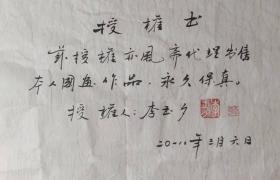 授权书
兹授权亦风斋代理出售
本人国画作品，永久保真。
授权人：李玉夕
20一一年三月六日